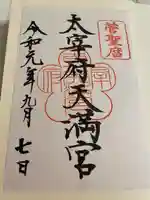 菅聖廟
太宰府天満宮
令和元年九月
七日